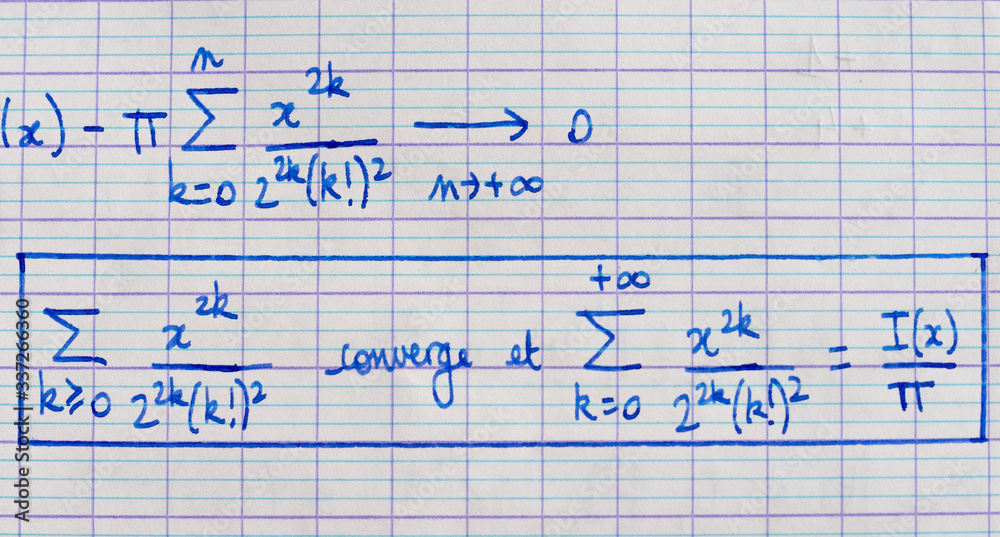 (x) - π ∑_{k=0}^{n} x^{2k} / 2^{2k}(k!)^2 ⟶_{n→+∞} 0
∑_{k≥0} x^{2k} / 2^{2k}(k!)^2 converge et ∑_{k=0}^{+∞} x^{2k} / 2^{2k}(k!)^2 = I(x) / π
Adobe Stock | #337266360